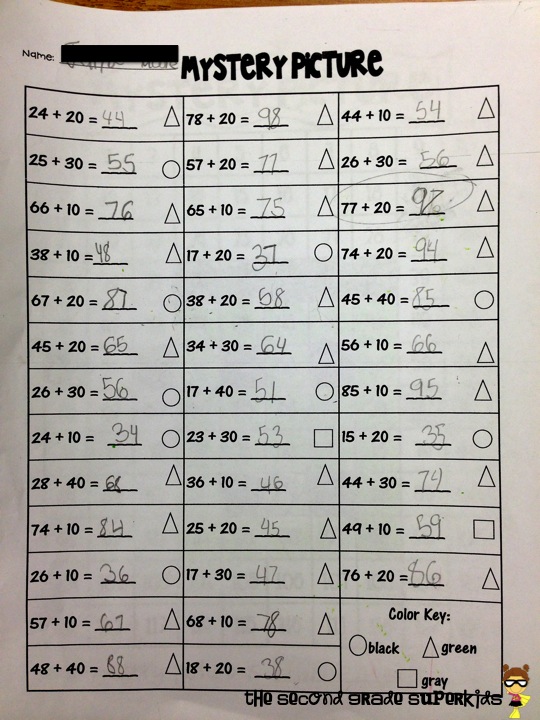 Name:
MYSTERY PICTURE
24 + 20 = 44 78 + 20 = 98 44 + 10 = 54
25 + 30 = 55 57 + 20 = 77 26 + 30 = 56
66 + 10 = 76 65 + 10 = 75 77 + 20 = 97
38 + 10 = 48 17 + 20 = 37 74 + 20 = 94
67 + 20 = 87 38 + 20 = 58 45 + 40 = 85
45 + 20 = 65 34 + 30 = 64 56 + 10 = 66
26 + 30 = 56 17 + 40 = 57 85 + 10 = 95
24 + 10 = 34 23 + 30 = 53 15 + 20 = 35
28 + 40 = 68 36 + 10 = 46 44 + 30 = 74
74 + 10 = 84 25 + 20 = 45 49 + 10 = 59
26 + 10 = 36 17 + 30 = 47 76 + 20 = 86
57 + 10 = 67 68 + 10 = 78 Color Key:
black green
48 + 40 = 88 18 + 20 = 38 gray
the second grade superkids